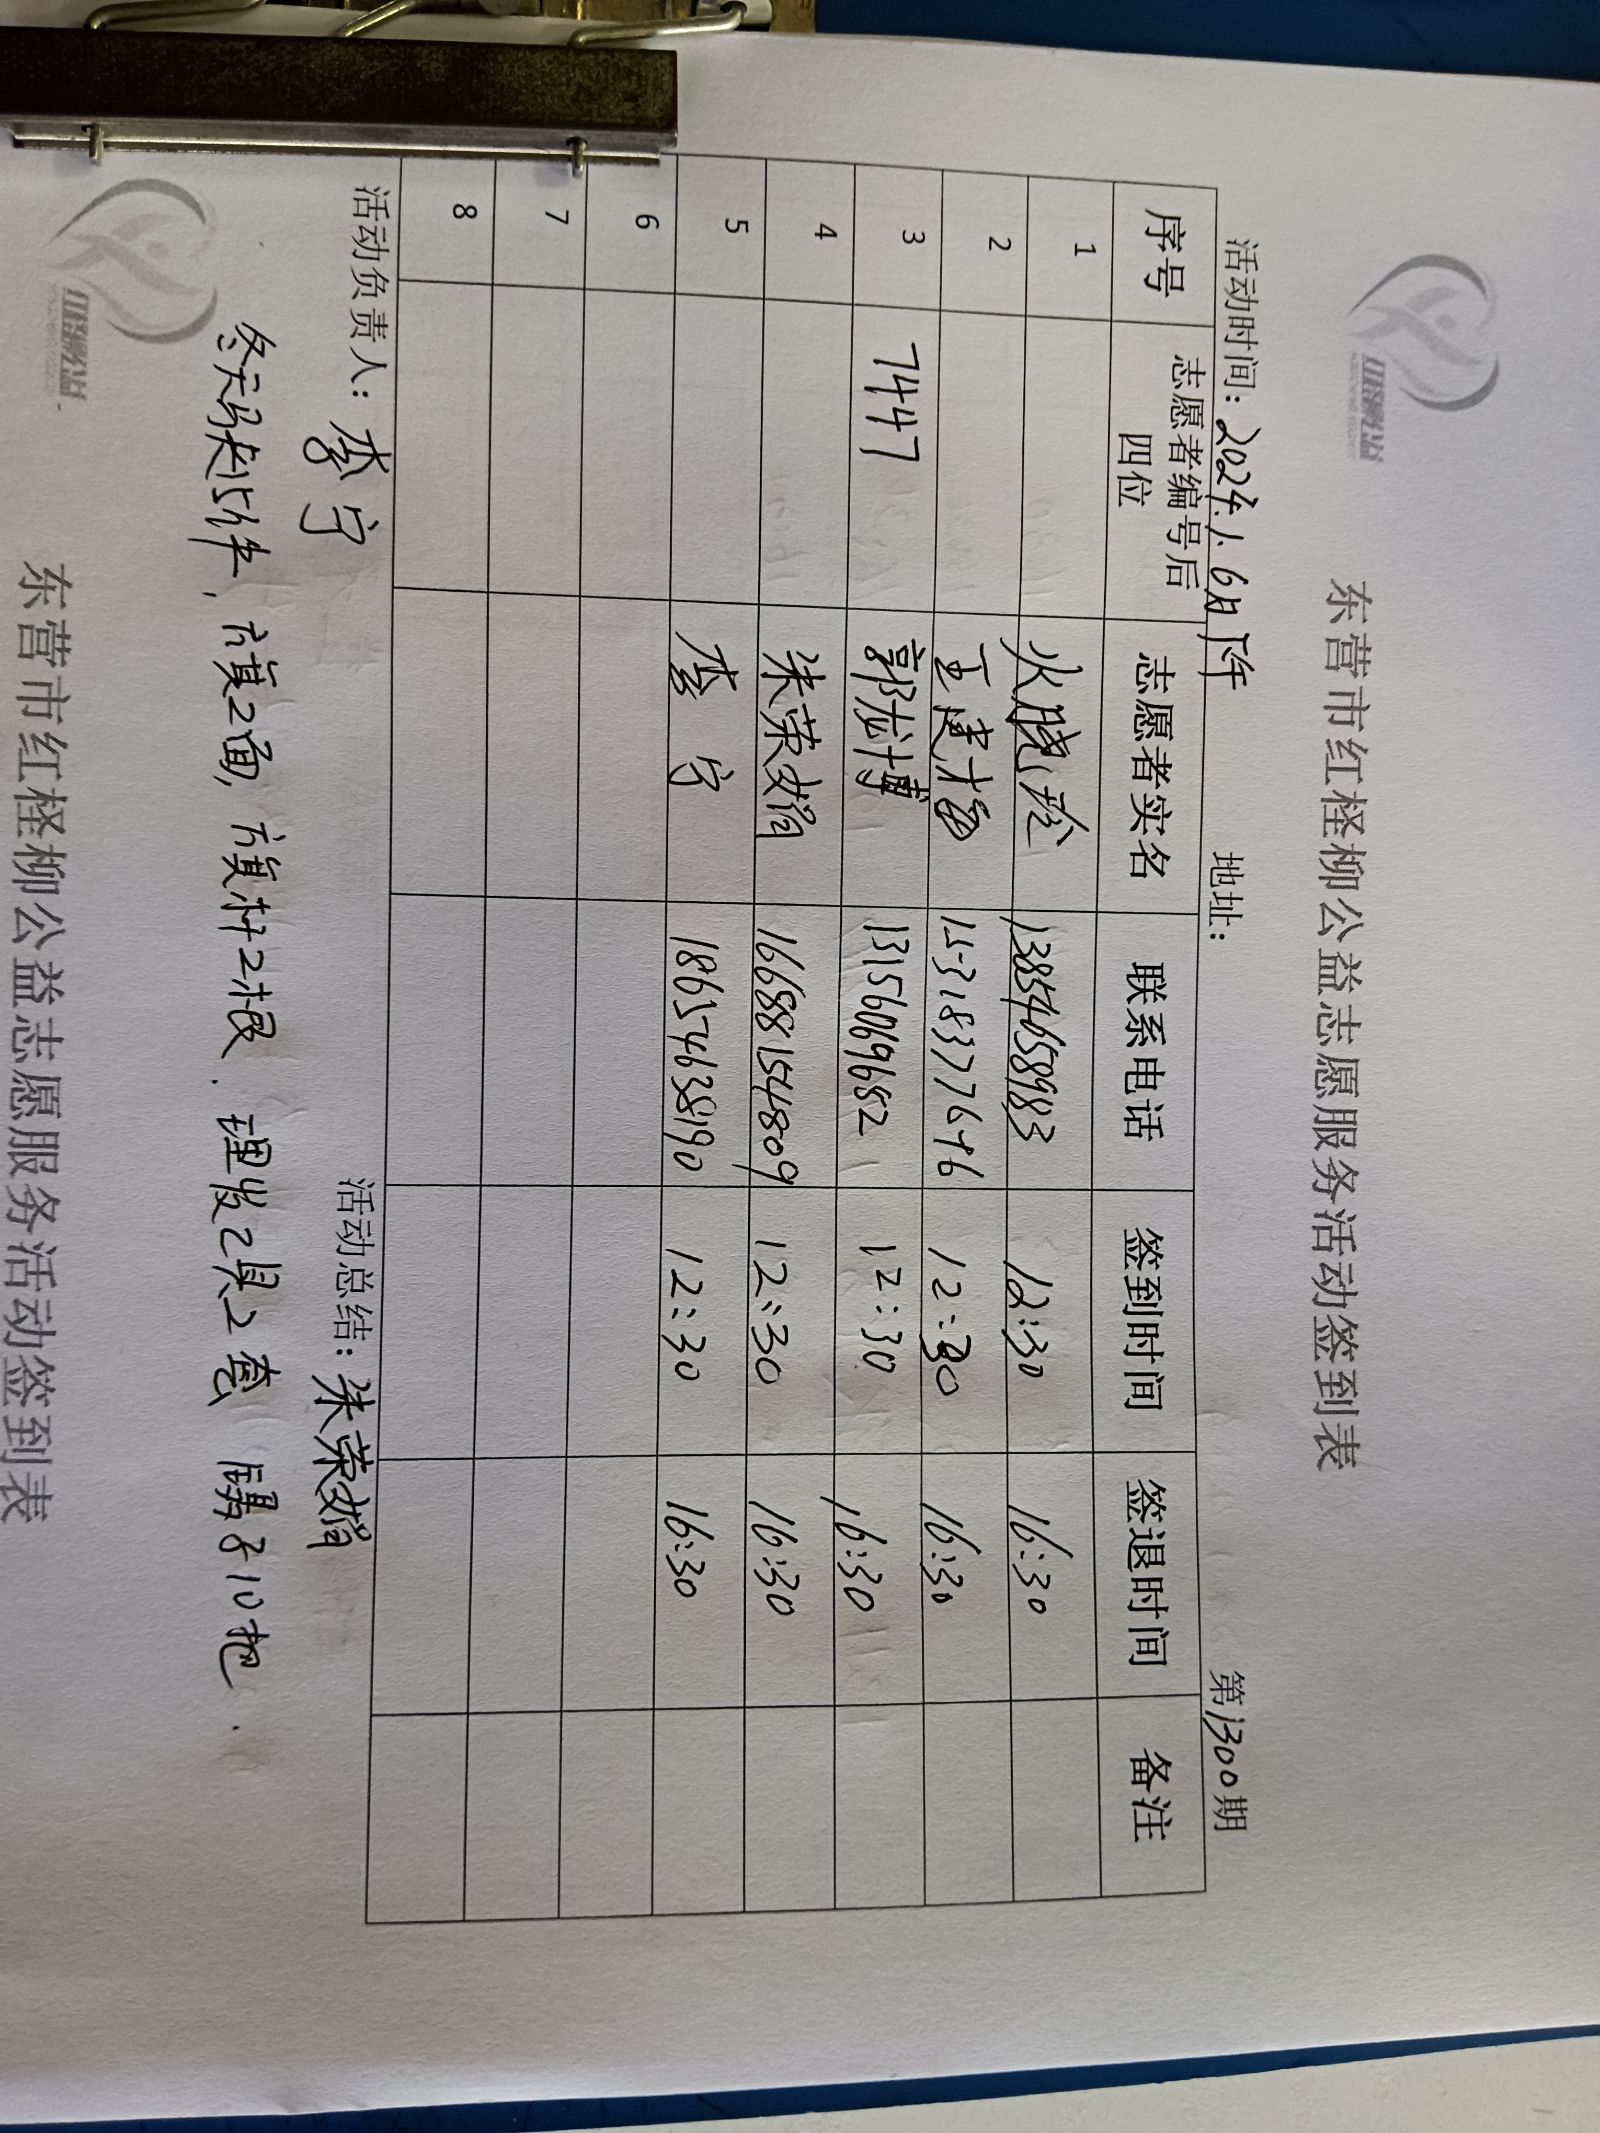 红柽柳公益
东营市红柽柳公益志愿服务活动签到表
活动时间: 2024.1.6日下午 地址: 第1300期
序号 志愿者编号后四位 志愿者实名 联系电话 签到时间 签退时间 备注
1 火晓珍 13854658983 12:30 16:30
2 王建梅 15318377646 12:30 16:30
3 7447 郭龙博 13156069682 12:30 16:30
4 朱荣娟 16688154809 12:30 16:30
5 李宁 18654638190 12:30 16:30
6
7
8
活动负责人: 李宁 活动总结: 朱荣娟
冬天马夹15件, 旗2面, 旗杆2根. 理发工具2套 剪子10把.
红柽柳公益
东营市红柽柳公益志愿服务活动签到表